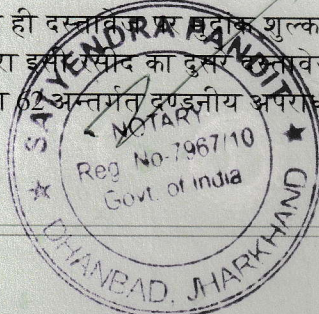 ही दस्तावेज पर मुद्रांक शुल्क
इसी रसीद का दुसरे दस्तावे
62 अन्तर्गत दण्डनीय अपराध
SATYENDRA PANDIT
NOTARY
Reg No-7967/10
Govt. of India
DHANBAD, JHARKHAND